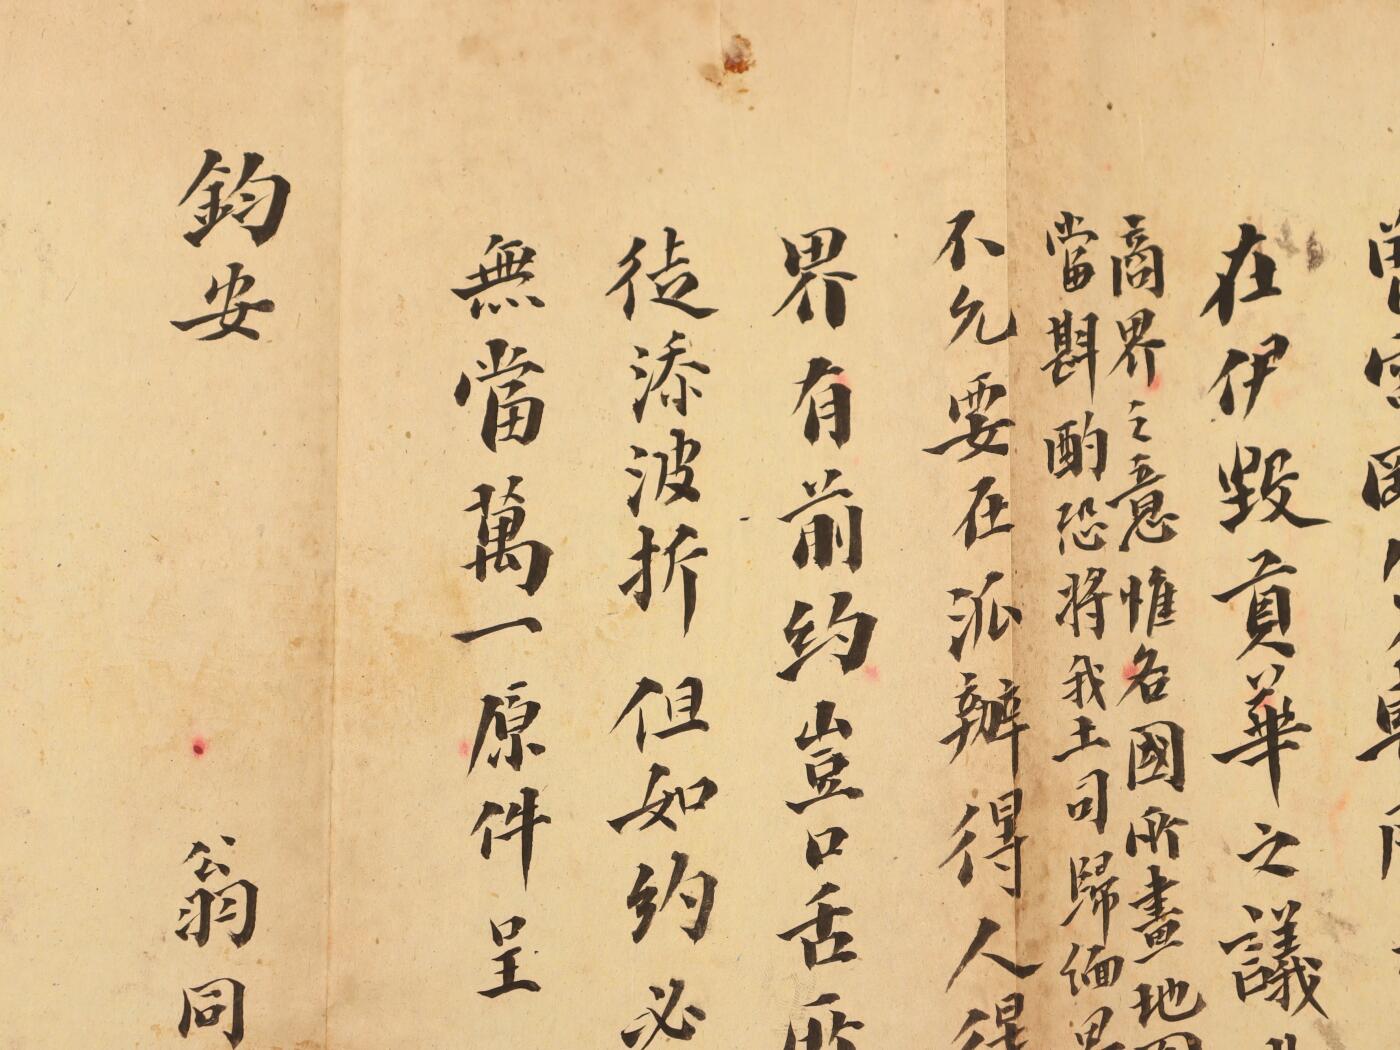 在伊毀貢華之議
商界之意惟各國所畫地圖
當斟酌恐將我土司歸緬界
不允要在派辦得人得
界有前約豈口舌所
徒添波折但如約必
無當萬一原件呈
鈞安
翁同